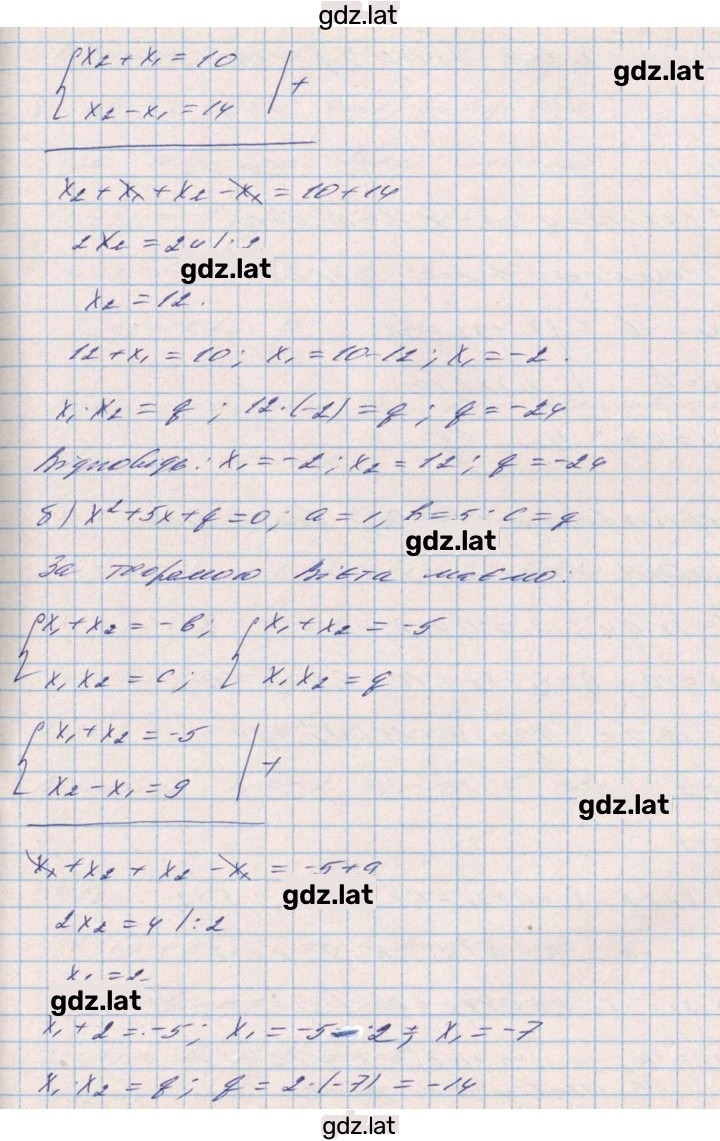 gdz.lat
{x₂ + x₁ = 10
gdz.lat
x₂ - x₁ = 14 | +
x₂ + x₁ + x₂ - x₁ = 10 + 14
2x₂ = 24 | : 2
gdz.lat
x₂ = 12.
12 + x₁ = 10; x₁ = 10 - 12; x₁ = -2.
x₁ · x₂ = q; 12 · (-2) = q; q = -24
Відповідь: x₁ = -2; x₂ = 12; q = -24
б) x² + 5x + q = 0; a = 1; b = 5; c = q
gdz.lat
За теоремою Вієта маємо:
{x₁ + x₂ = -b; {x₁ + x₂ = -5
x₁ x₂ = c; x₁ x₂ = q
{x₁ + x₂ = -5
x₂ - x₁ = 9 | +
gdz.lat
x₁ + x₂ + x₂ - x₁ = -5 + 9
gdz.lat
2x₂ = 4 | : 2
= 2
gdz.lat
x₁ + 2 = -5; x₁ = -5 - 2; x₁ = -7
x₁ · x₂ = q; q = 2 · (-7) = -14
gdz.lat